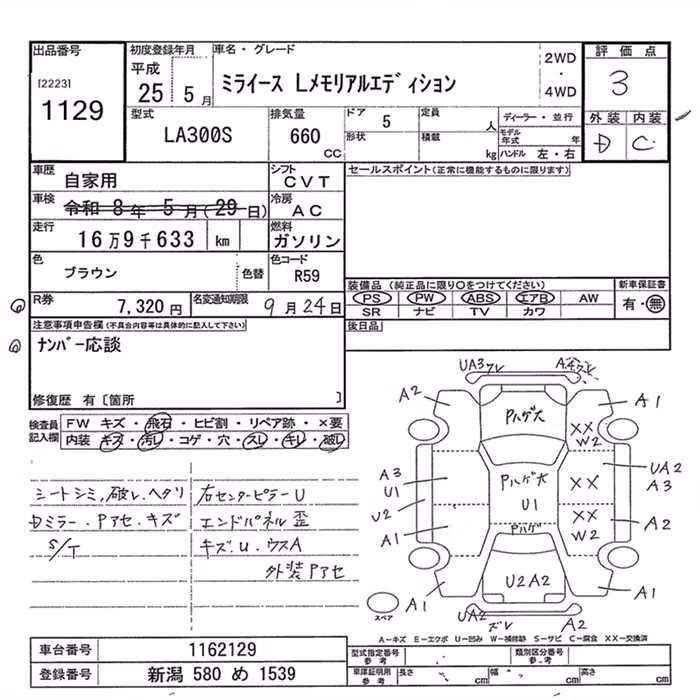 出品番号
[2223]
1129
初度登録年月
平成
25 5月
車名・グレード
ミライース Lメモリアルエディション
2WD
・
4WD
評価点
3
外装 内装
D C
型式
LA300S
排気量
660
cc
ドア 5
形状
定員 人
積載 kg
ディーラー・並行
モデル年式 年
ハンドル 左・右
車歴
自家用
シフト
CVT
車検
令和 8年 5月(29日)
冷房
AC
走行
16万9千633 km
燃料
ガソリン
色
ブラウン
色替
色コード
R59
R券
7,320円
名変通知期限
9月24日
セールスポイント(正常に機能するものに限ります)
装備品(純正品に限り○をつけてください)
PS PW ABS エアB AW
SR ナビ TV カワ
新車保証書
有・無
後日品
注意事項申告欄(不具合内容等は具体的に記入して下さい)
ナンバー応談
修復歴 有[箇所 ]
検査員
記入欄
FW キズ・飛石・ヒビ割・リペア跡・×要
内装 キズ・汚レ・コゲ・穴・スレ・キレ・破レ
シートシミ,破レ,ヘタリ
Dミラー.Pアセ.キズ
S/T
右センターピラーU
エンドパネル歪
キズ.U.ウスA
外装Pアセ
UA3ズレ
A4ズレ
A2
A1
Pハゲ大
XX
W2
A3
U1
Pハゲ大
U1
XX
UA2
A3
U2
XX
W2
A2
A1
Pハゲ
U2A2
A1
A1
UA2
ズレ
A2
スペア
A−キズ E−エクボ U−凹み W−補修跡 S−サビ C−腐食 XX−交換済
車台番号
1162129
登録番号
新潟 580 め 1539
型式指定番号
参考
類別区分番号
参考
車庫証明用
参考
長さ cm 幅 cm 高さ cm